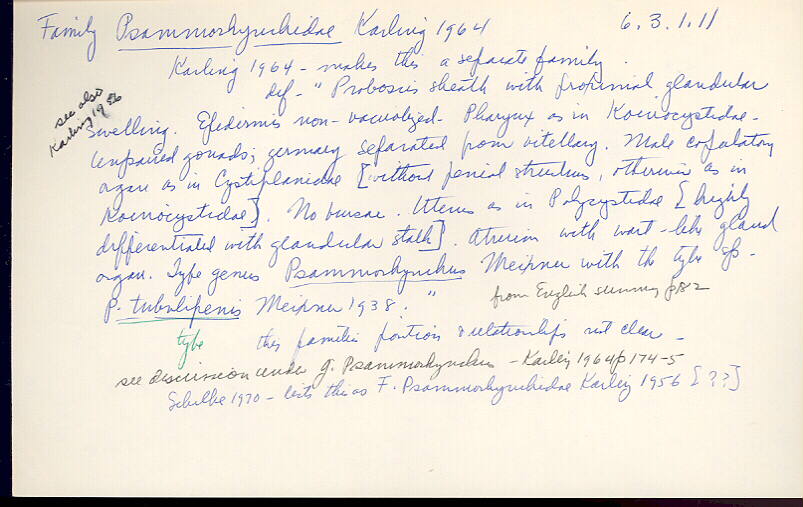 Family Psammorhynchidae Karling 1964 6.3.1.11
Karling 1964 - makes this a separate family.
def - "Proboscis sheath with proximal glandular
see also
Karling 1956
swelling. Epidermis non-vacuolized. Pharynx as in Koinocystidae.
Unpaired gonads; germary separated from vitellary. Male copulatory
organ as in Cystiplanidae [without penial structures, otherwise as in
Koinocystidae]. No bursae. Uterus as in Polycystidae [highly
differentiated with glandular stalk]. Atrium with wart-like gland
organ. Type genus Psammorhynchus Meixner with the type sp.
P. tubulipenis Meixner 1938." from English summary p82
type this families position & relationships not clear -
see discussion under g. Psammorhynchus - Karling 1964 p 174-5
1970 - lists this as F. Psammorhynchidae Karling 1956 [??]